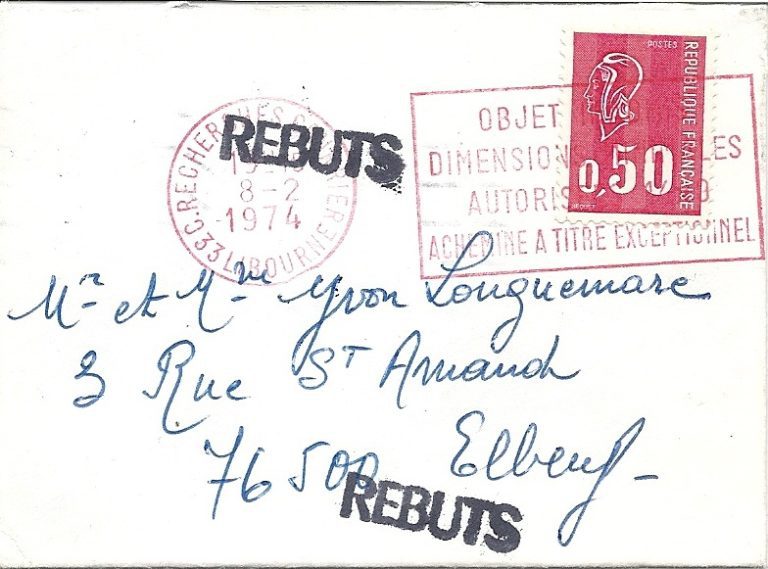 POSTES
REPUBLIQUE FRANÇAISE
0,50
BEQUET
REBUTS
8-2
1974
33 LIBOURNE
OBJET
DIMENSIONS
AUTORIS
ACHEMINE A TITRE EXCEPTIONNEL
Mr et Mme Yvon Longuemare
3 Rue St Amand
76500 Elbeuf-
REBUTS